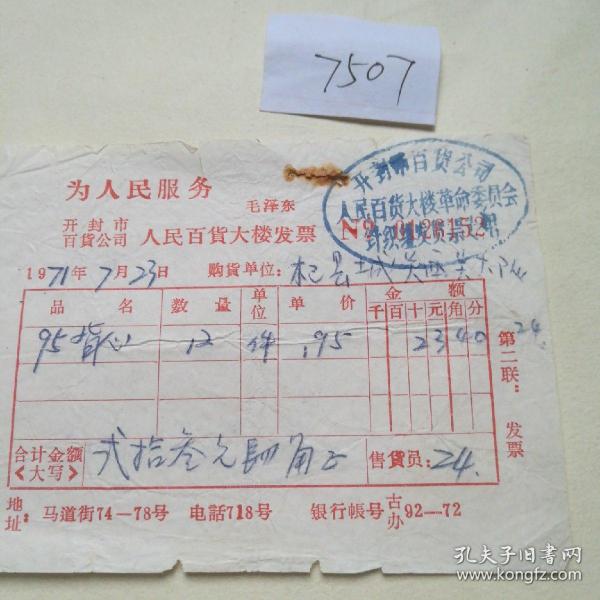 7507
为人民服务
毛泽东
开封市百貨公司
人民百貨大楼革命委员会
开封市
百貨公司 人民百貨大楼发票 №
1971年7月23日 购货单位：杞县城关
品名 数量 单位 单价 金额
千百十元角分
95背心 12 件 1.95 23 40
24
第二联：发票
合计金额
〈大写〉 弍拾叁元肆角正 售货员：24.
地址：马道街74—78号 电話718号 银行帳号 古办92—72
孔夫子旧书网
www.kongfz.com